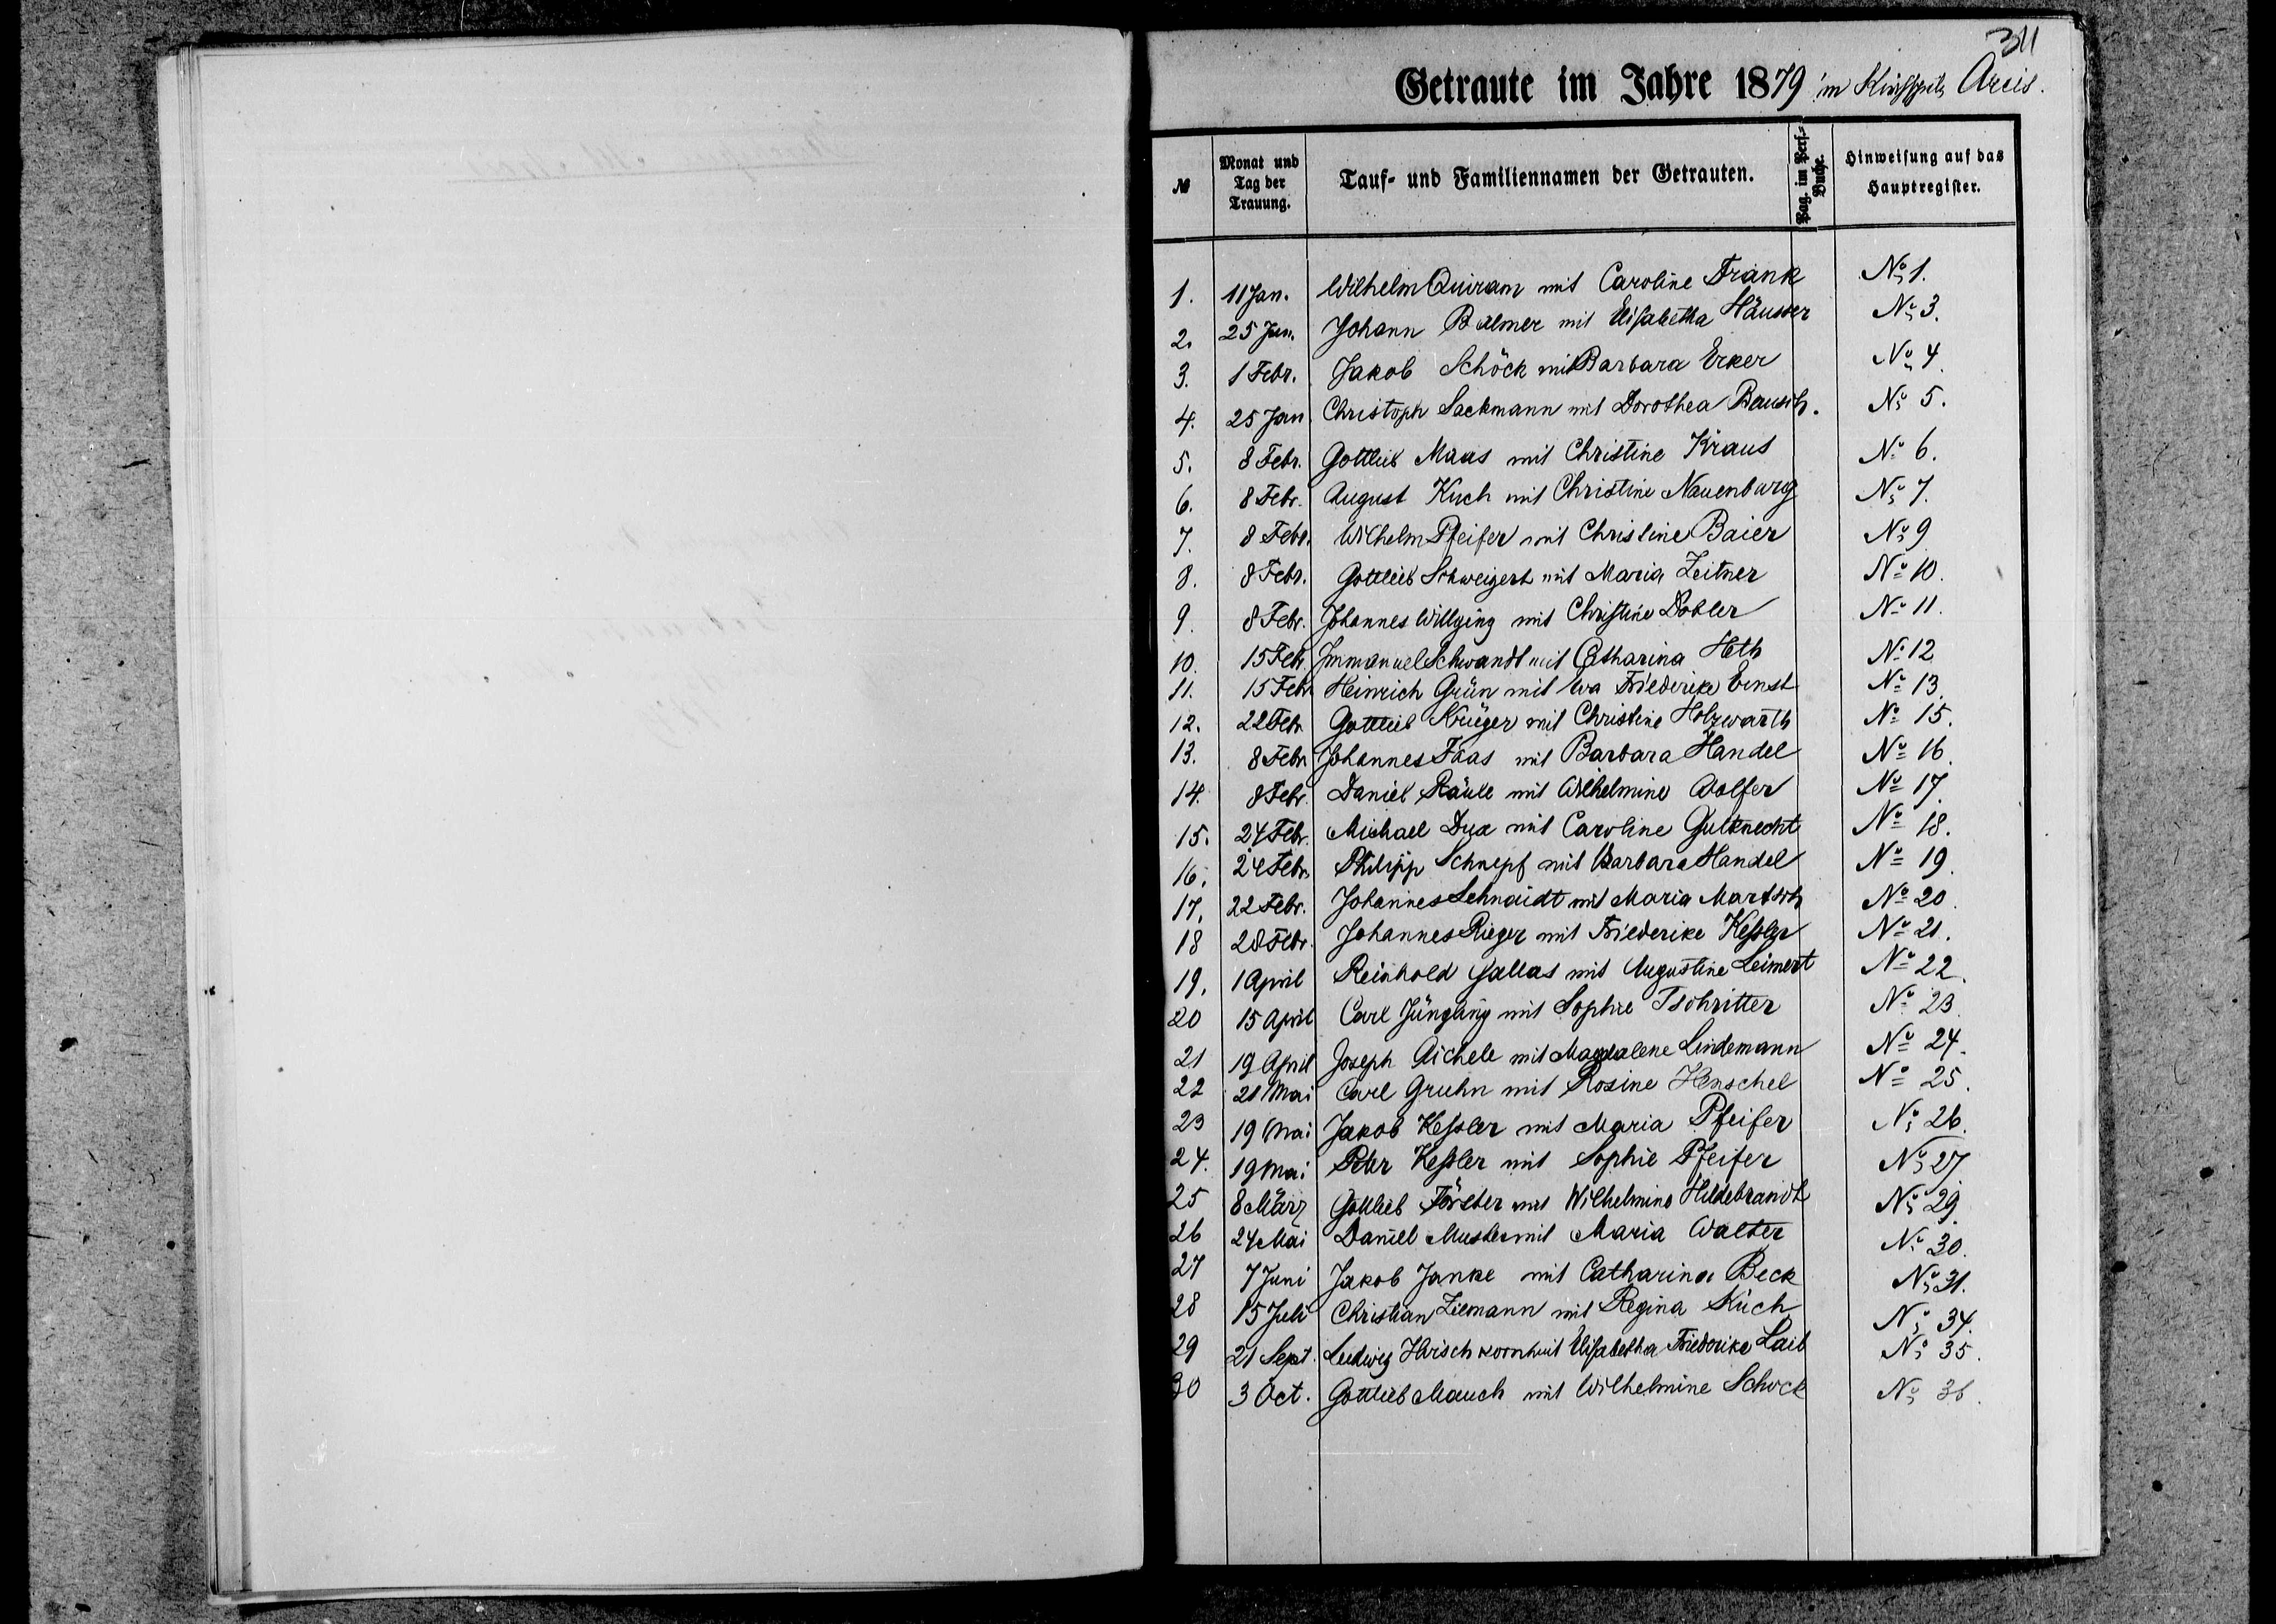 311
Getraute im Jahre 1879 im Kirchspiele Arcis.
№ Monat und Tag der Trauung. Tauf- und Familiennamen der Getrauten. Pag. im Pers.-Buche. Hinweisung auf das Hauptregister.
1. 11 Jan. Wilhelm Quiram mit Caroline Frank № 1.
2. 25 Jan. Johann Balmer mit Elisabetha Häusser № 3.
3. 1 Febr. Jakob Schöck mit Barbara Erker № 4.
4. 25 Jan. Christoph Sackmann mit Dorothea Bausch. № 5.
5. 8 Febr. Gottlieb Maas mit Christine Kraus № 6.
6. 8 Febr. August Kuch mit Christine Nauenburg № 7.
7. 8 Febr. Wilhelm Pfeifer mit Christine Baier № 9
8. 8 Febr. Gottlieb Schweigert mit Maria Zeitner № 10.
9. 8 Febr. Johannes Willging mit Christine Dobler № 11.
10. 15 Febr. Immanuel Schwandt mit Catharina Heth № 12
11. 15 Febr Heinrich Grün mit Eva Friederike Ernst № 13.
12. 22 Febr Gottlieb Krüger mit Christine Holzwarth № 15.
13. 8 Febr Johannes Faas mit Barbara Handel № 16.
14. 8 Febr. Daniel Räule mit Wilhelmine Wolfer № 17.
15. 24 Febr. Michael Dux mit Caroline Gutknecht № 18.
16. 24 Febr. Philipp Schnepf mit Barbara Handel № 19.
17. 22 Febr. Johannes Schnaidt mit Maria Martsch № 20
18 28 Febr. Johannes Rieger mit Friederike Keßler № 21.
19. 1 April Reinhold Gallas mit Augustine Leimert № 22.
20 15 April Carl Jüngling mit Sophie Tschritter № 23.
21 19 April Joseph Aichele mit Magdalene Lindemann № 24.
22 21 Mai Carl Gruhn mit Rosine Henschel № 25.
23 19 Mai Jakob Keßler mit Maria Pfeifer № 26.
24. 19 Mai Peter Keßler mit Sophie Pfeifer № 27
25 8 März Gottlieb Förster mit Wilhelmine Hildebrandt № 29.
26 24 Mai Daniel Muster mit Maria Walter № 30.
27 7 Juni Jakob Janke mit Catharina Beck № 31.
28 15 Juli Christian Ziemann mit Regina Kuch № 34.
29 21 Sept. Ludwig Hirschkorn mit Elisabetha Friederike Laib № 35.
30 3 Oct. Gottlieb Mauch mit Wilhelmine Schock № 36.